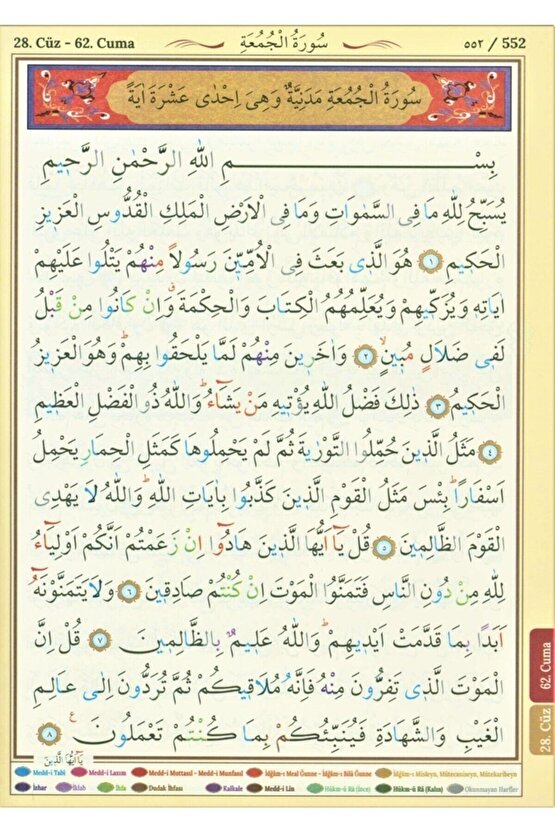 28. Cüz - 62. Cuma
سُورَةُ الْجُمُعَةِ
٥٥٢ / 552
سُورَةُ الْجُمُعَةِ مَدَنِيَّةٌ وَهِيَ اِحْدٰى عَشْرَةَ اٰيَةً
بِسْمِ اللّٰهِ الرَّحْمٰنِ الرَّحٖيمِ
يُسَبِّحُ لِلّٰهِ مَا فِى السَّمٰوَاتِ وَمَا فِى الْاَرْضِ الْمَلِكِ الْقُدُّوسِ الْعَزٖيزِ
الْحَكٖيمِ ١ هُوَ الَّذٖى بَعَثَ فِى الْاُمِّيّٖنَ رَسُولًا مِنْهُمْ يَتْلُوا عَلَيْهِمْ
اٰيَاتِهٖ وَيُزَكّٖيهِمْ وَيُعَلِّمُهُمُ الْكِتَابَ وَالْحِكْمَةَ وَاِنْ كَانُوا مِنْ قَبْلُ
لَفٖى ضَلَالٍ مُبٖينٍ ٢ وَاٰخَرٖينَ مِنْهُمْ لَمَّا يَلْحَقُوا بِهِمْ وَهُوَ الْعَزٖيزُ
الْحَكٖيمُ ٣ ذٰلِكَ فَضْلُ اللّٰهِ يُؤْتٖيهِ مَنْ يَشَٓاءُ وَاللّٰهُ ذُو الْفَضْلِ الْعَظٖيمِ
٤ مَثَلُ الَّذٖينَ حُمِّلُوا التَّوْرٰيةَ ثُمَّ لَمْ يَحْمِلُوهَا كَمَثَلِ الْحِمَارِ يَحْمِلُ
اَسْفَارًا بِئْسَ مَثَلُ الْقَوْمِ الَّذٖينَ كَذَّبُوا بِاٰيَاتِ اللّٰهِ وَاللّٰهُ لَا يَهْدِى
الْقَوْمَ الظَّالِمٖينَ ٥ قُلْ يَٓا اَيُّهَا الَّذٖينَ هَادُٓوا اِنْ زَعَمْتُمْ اَنَّكُمْ اَوْلِيَٓاءُ
لِلّٰهِ مِنْ دُونِ النَّاسِ فَتَمَنَّوُا الْمَوْتَ اِنْ كُنْتُمْ صَادِقٖينَ ٦ وَلَا يَتَمَنَّوْنَهُٓ
اَبَدًا بِمَا قَدَّمَتْ اَيْدٖيهِمْ وَاللّٰهُ عَلٖيمٌ بِالظَّالِمٖينَ ٧ قُلْ اِنَّ
الْمَوْتَ الَّذٖى تَفِرُّونَ مِنْهُ فَاِنَّهُ مُلَاقٖيكُمْ ثُمَّ تُرَدُّونَ اِلٰى عَالِمِ
الْغَيْبِ وَالشَّهَادَةِ فَيُنَبِّئُكُمْ بِمَا كُنْتُمْ تَعْمَلُونَ ٨ ع
يَٓا اَيُّهَا الَّذٖينَ
62. Cuma
28. Cüz
Medd-i Tabi Medd-i Lazım Medd-i Muttasıl - Medd-i Munfasıl İdğam-ı Meal Ğunne - İdğam-ı Bilâ Ğunne İdğâm-ı Misleyn, Mütecaniseyn, Mütekaribeyn
İzhar İklab İhfa Dudak İhfası Kalkale Medd-i Lin Hükm-ü Râ (İnce) Hükm-ü Râ (Kalın) Okunmayan Harfler